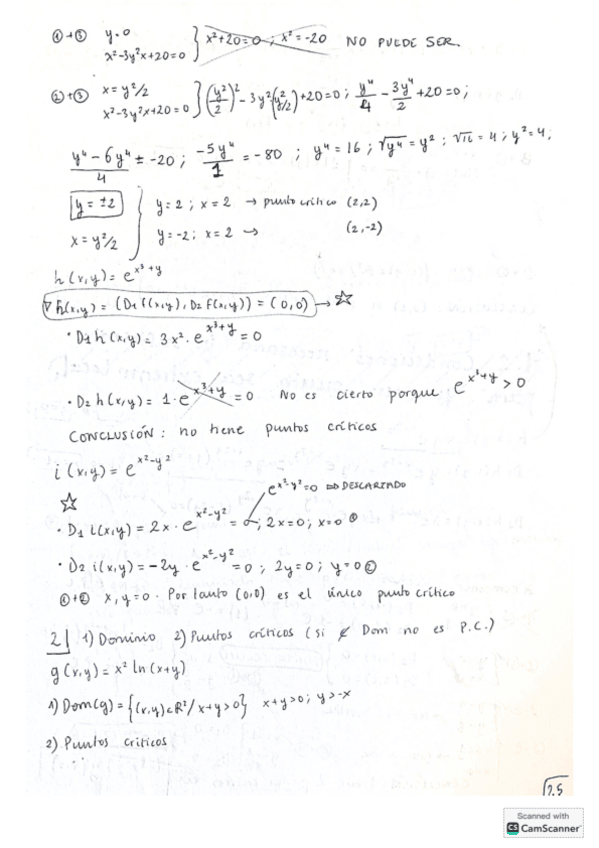 ①+③ y=0
x²-3y²x+20=0 } x²+20=0 ; x²=-20 NO PUEDE SER.
②+③ x=y²/2
x²-3y²x+20=0 } (y²/2)² - 3y²(y²/2)+20=0 ; y⁴/4 - 3y⁴/2 +20=0 ;
y⁴-6y⁴/4 = -20 ; -5y⁴/1 = -80 ; y⁴=16 ; √y⁴=y² ; √16=4 ; y²=4 ;
y=±2 } y=2 ; x=2 → punto crítico (2,2)
x=y²/2 y=-2 ; x=2 → (2,-2)
h(x,y)= e^(x³+y)
∇h(x,y) = (D1 f(x,y), D2 f(x,y)) = (0,0) → ☆
• D1 h(x,y)= 3x²·e^(x³+y) = 0
• D2 h(x,y)= 1·e^(x³+y) = 0 No es cierto porque e^(x³+y) > 0
CONCLUSIÓN: no tiene puntos críticos
i(x,y)= e^(x²-y²)
e^(x²-y²)=0 ⇨ DESCARTADO
☆
• D1 i(x,y)= 2x·e^(x²-y²) = 0 ; 2x=0 ; x=0 ①
• D2 i(x,y)= -2y·e^(x²-y²) = 0 ; 2y=0 ; y=0 ②
①+② x,y=0. Por tanto (0,0) es el único punto crítico
2| 1) Dominio 2) Puntos críticos (si ∉ Dom no es P.C.)
g(x,y)= x² ln(x+y)
1) Dom(g)= {(x,y)∈R²/x+y>0} x+y>0 ; y>-x
2) Puntos críticos
Scanned with
CS CamScanner